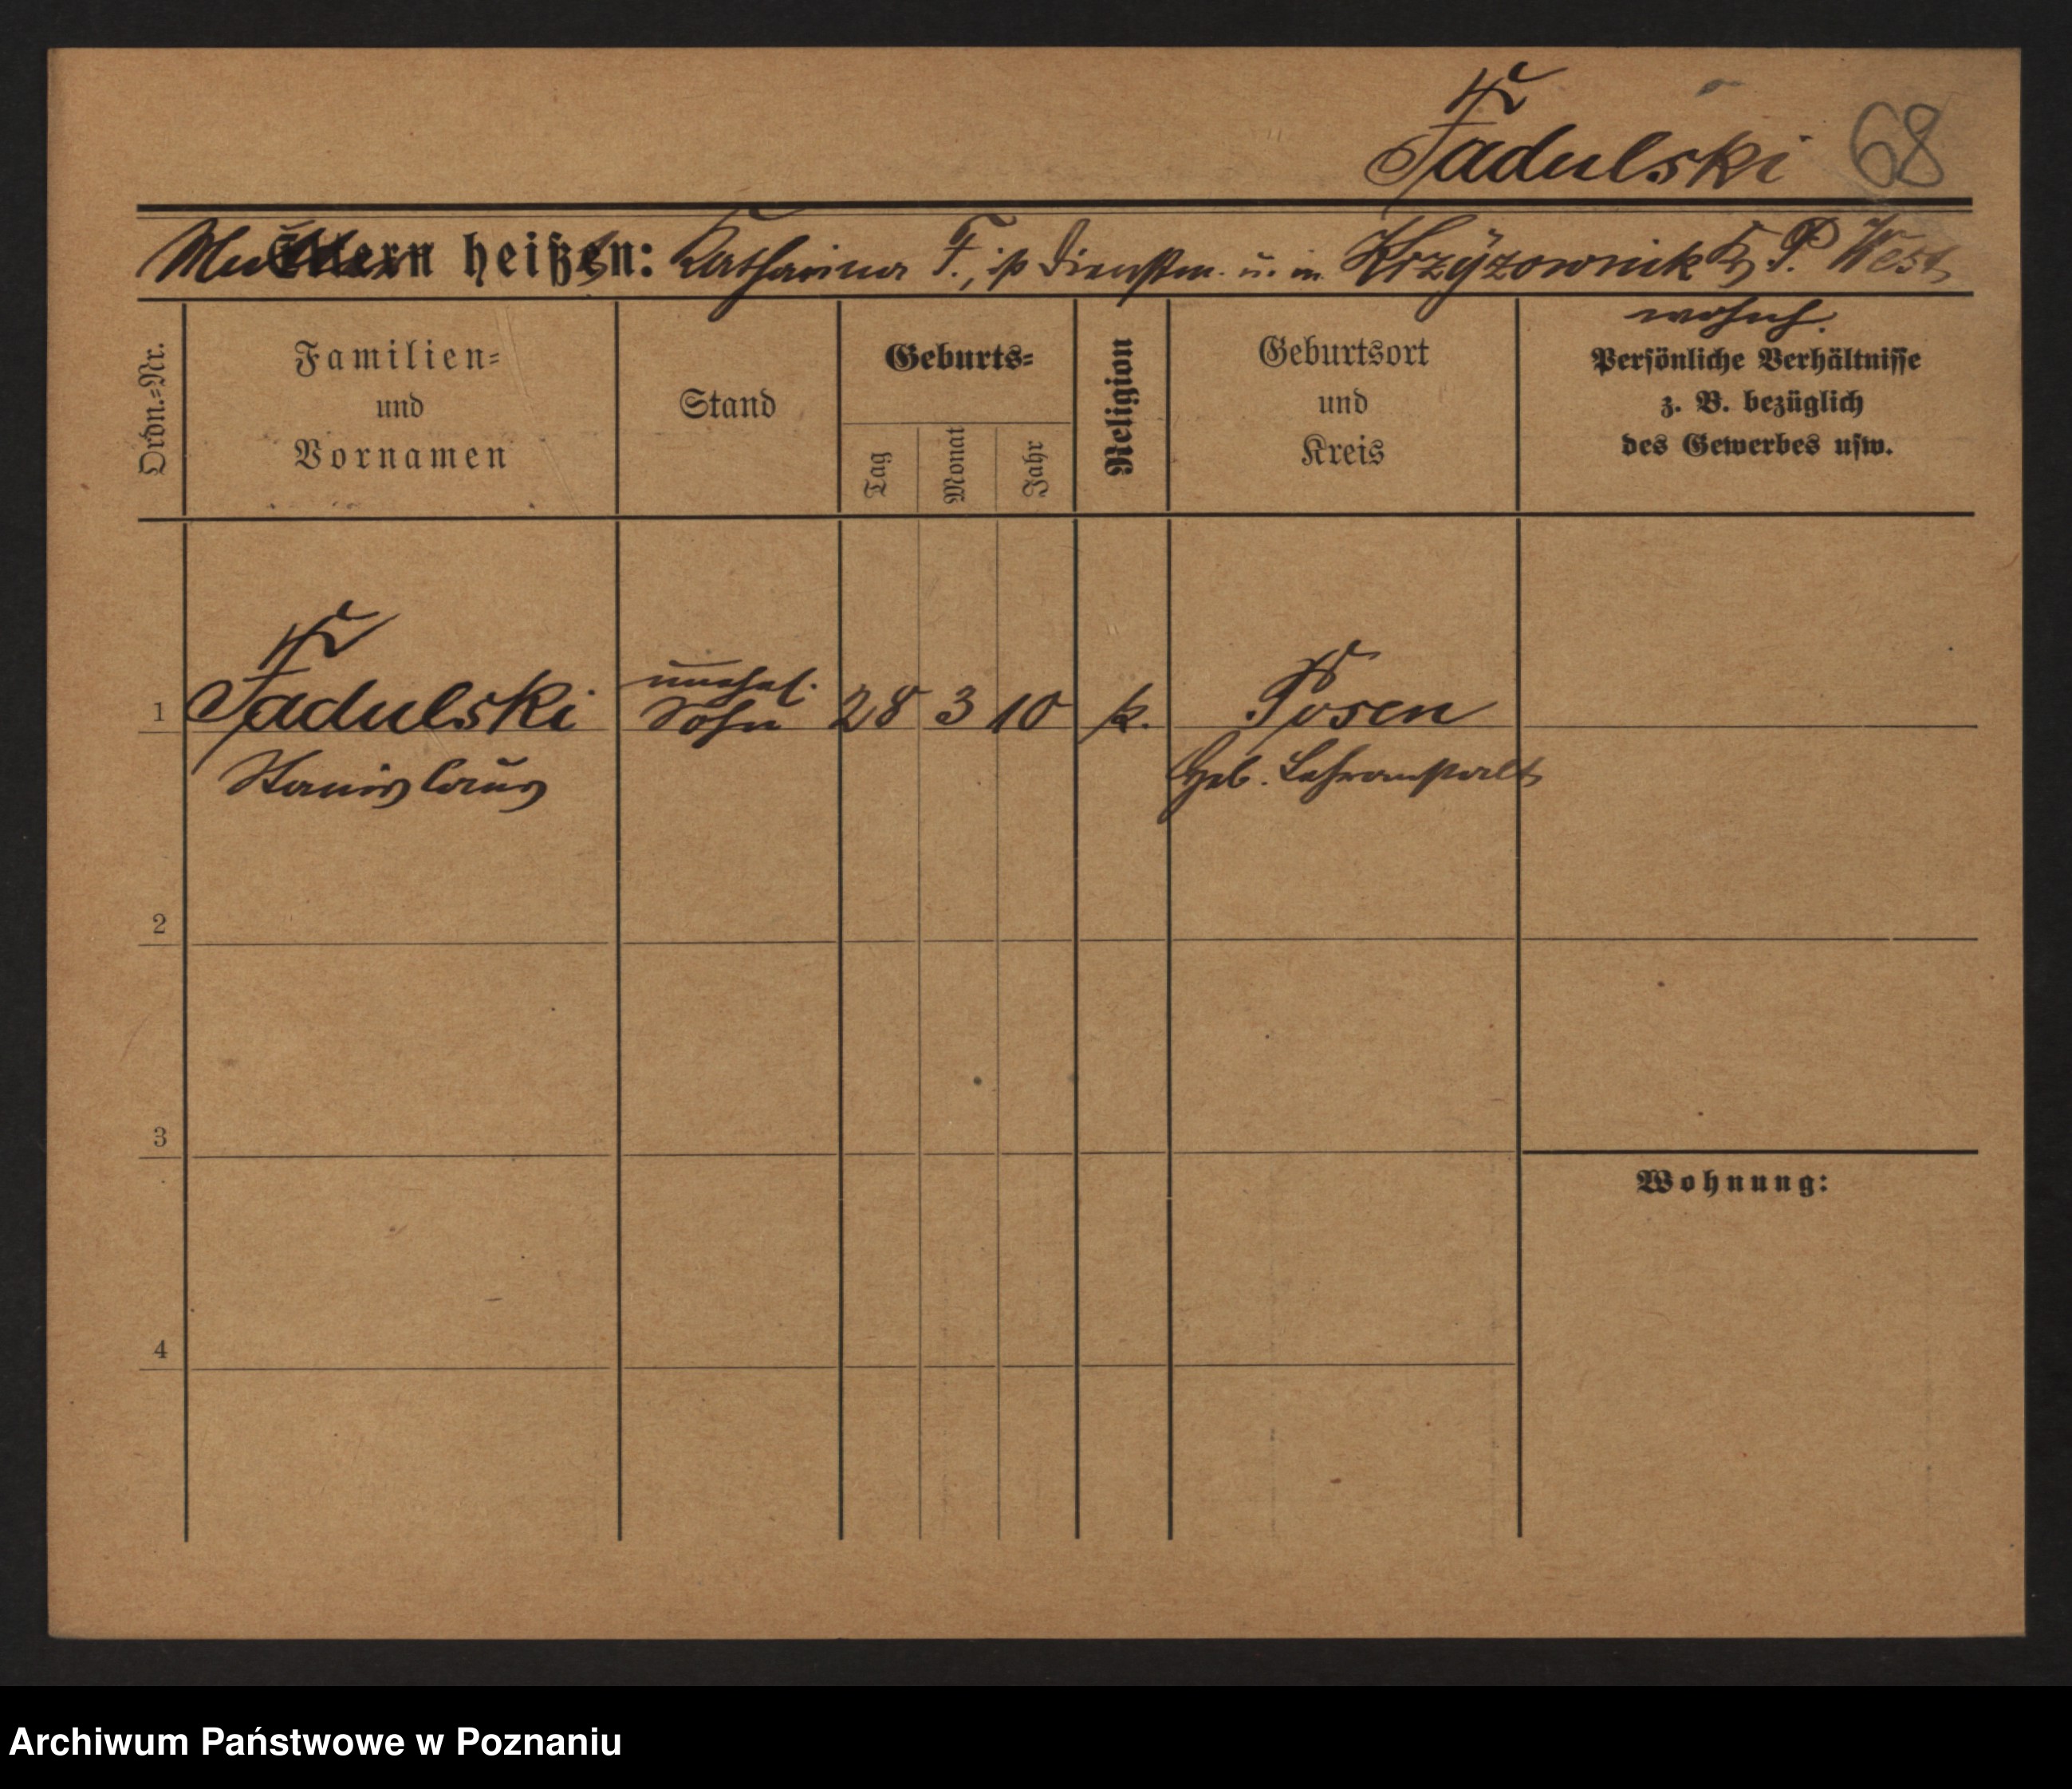 Fadulski 68
Mutter heißt: Katharina F., ist Dienstm. u. in Krzyżownik Kr. P. West
wohnh.
Ordn.=Nr.
Familien=
und
Vornamen
Stand
Geburts=
Tag
Monat
Jahr
Religion
Geburtsort
und
Kreis
Persönliche Verhältnisse
z. B. bezüglich
des Gewerbes usw.
1 Fadulski unehel. Sohn 28 3 10 k. Posen
Stanislaus Heb. Lehranstalt
2
3
Wohnung:
4
Archiwum Państwowe w Poznaniu